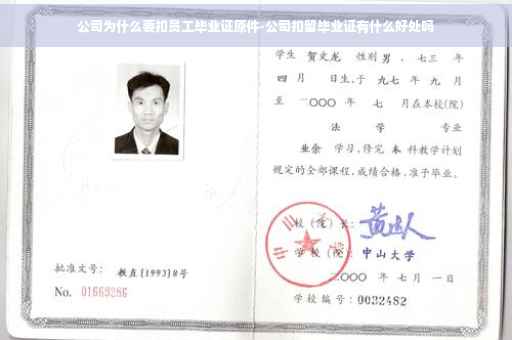 公司为什么要扣员工毕业证原件-公司扣留毕业证有什么好处吗
学生 贺文龙 性别 男 、七三 年
四 月 日生,于 九七 年 九 月
至 二〇〇〇 年 七 月在本校(院)
法 学 专业
业余 学习,修完 本 科教学计划
规定的全部课程,成绩合格,准予毕业。
校(院)长:
学校(院): 中山大学
二〇〇〇 年 七 月 一 日
学校编号: 0032482
批准文号: 教直[1993]8号
No. 01663286